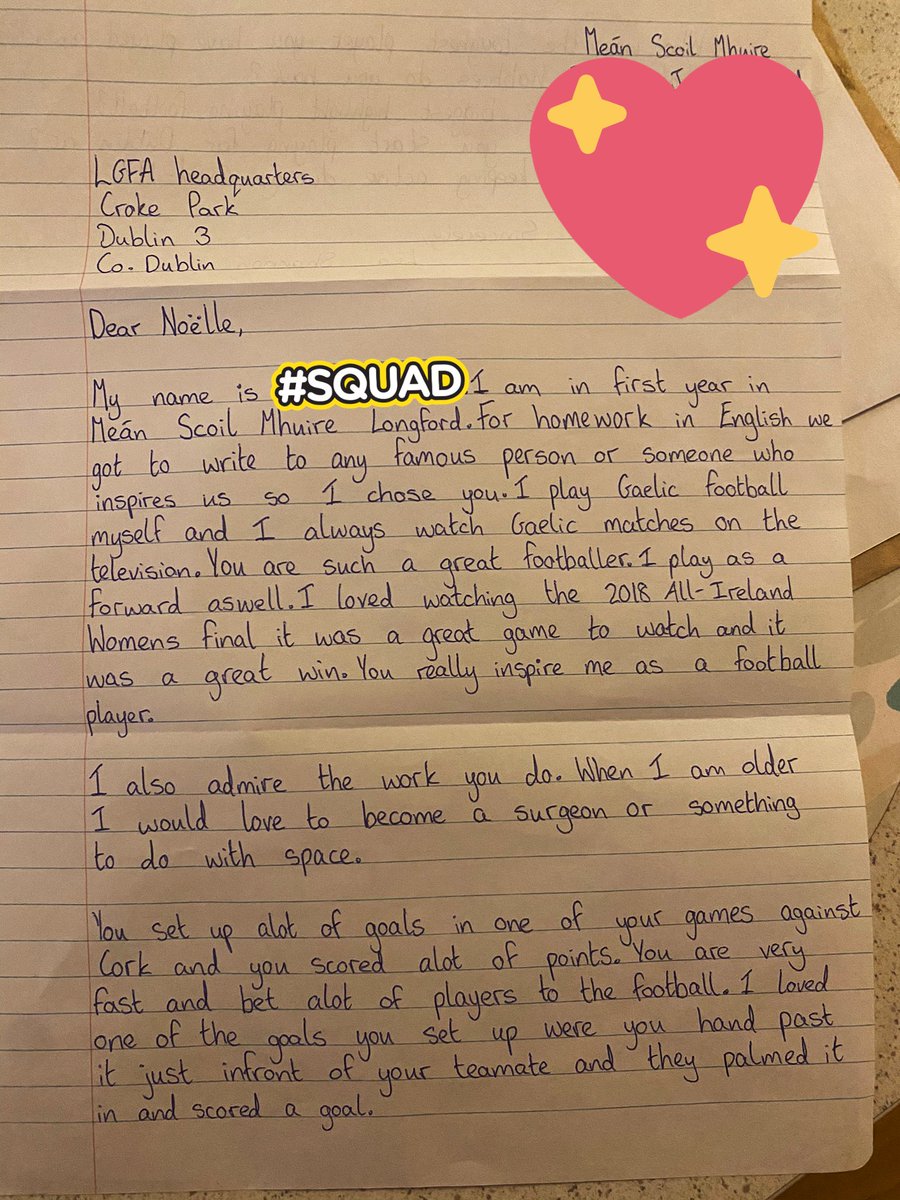 Meán Scoil Mhuire
LGFA headquarters
Croke Park
Dublin 3
Co. Dublin
Dear Noëlle,
My name is #SQUAD. I am in first year in
Meán Scoil Mhuire Longford. For homework in English we
got to write to any famous person or someone who
inspires us so I chose you. I play Gaelic football
myself and I always watch Gaelic matches on the
television. You are such a great footballer. I play as a
forward aswell. I loved watching the 2018 All-Ireland
Womens final it was a great game to watch and it
was a great win. You really inspire me as a football
player.
I also admire the work you do. When I am older
I would love to become a surgeon or something
to do with space.
You set up alot of goals in one of your games against
Cork and you scored alot of points. You are very
fast and bet alot of players to the football. I loved
one of the goals you set up were you hand past
it just infront of your teamate and they palmed it
in and scored a goal.